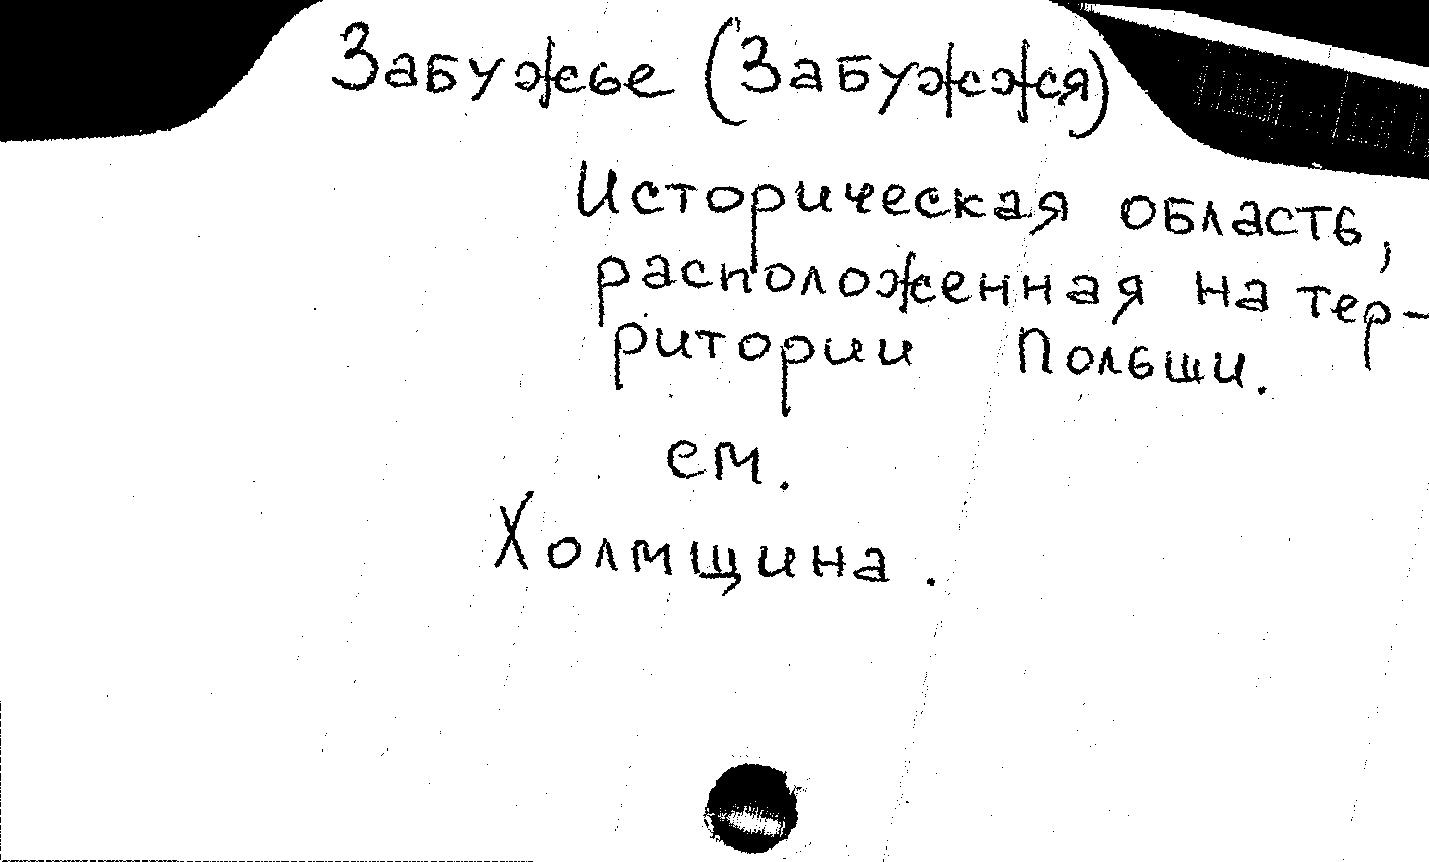 Забужье (Забужжя)
Историческая область,
расположенная на тер-
ритории Польши.
см.
Холмщина.